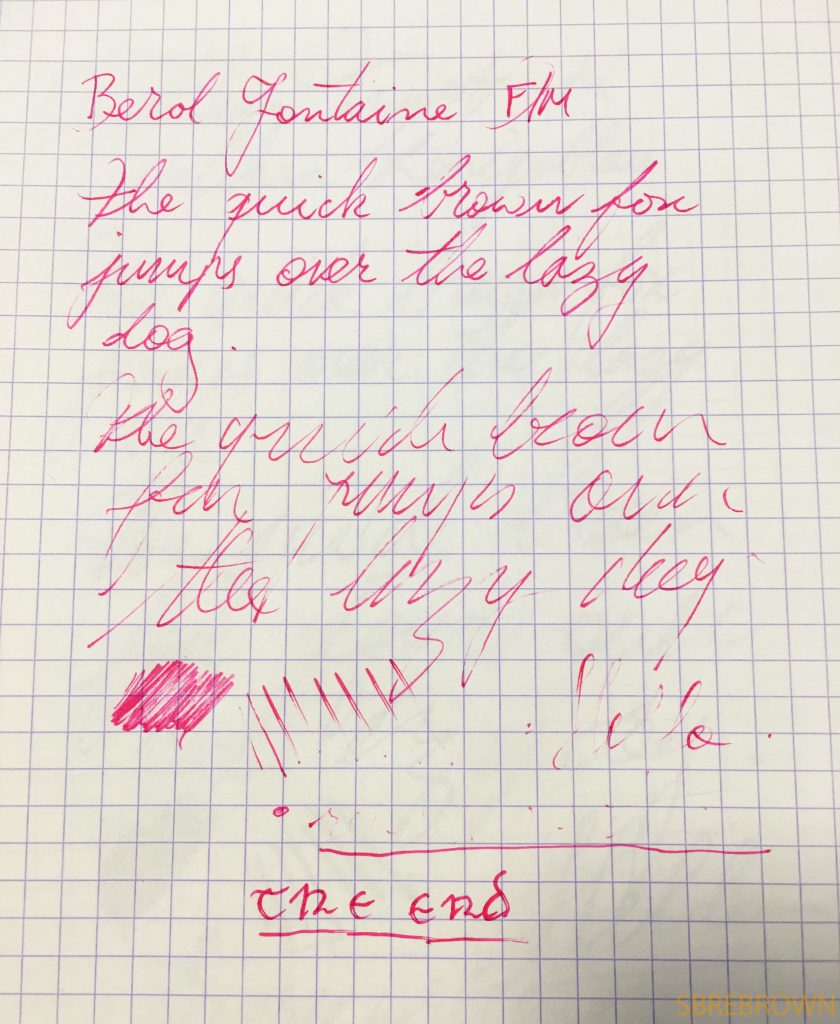 Berol Fontaine F/M
The quick brown fox
jumps over the lazy
dog.
The quick brown
fox jumps over
the lazy dog
Hello
THE END
SBREBROWN